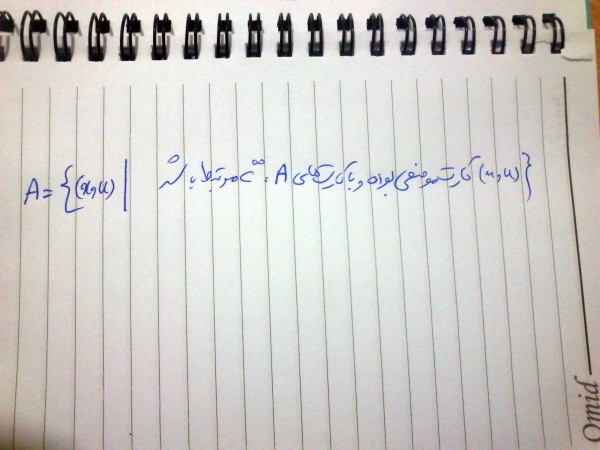 A = {(x,u) | (x,u) کارت موضعی بوده و با کارت‌های A، C^∞ مرتبط باشد}
Omid